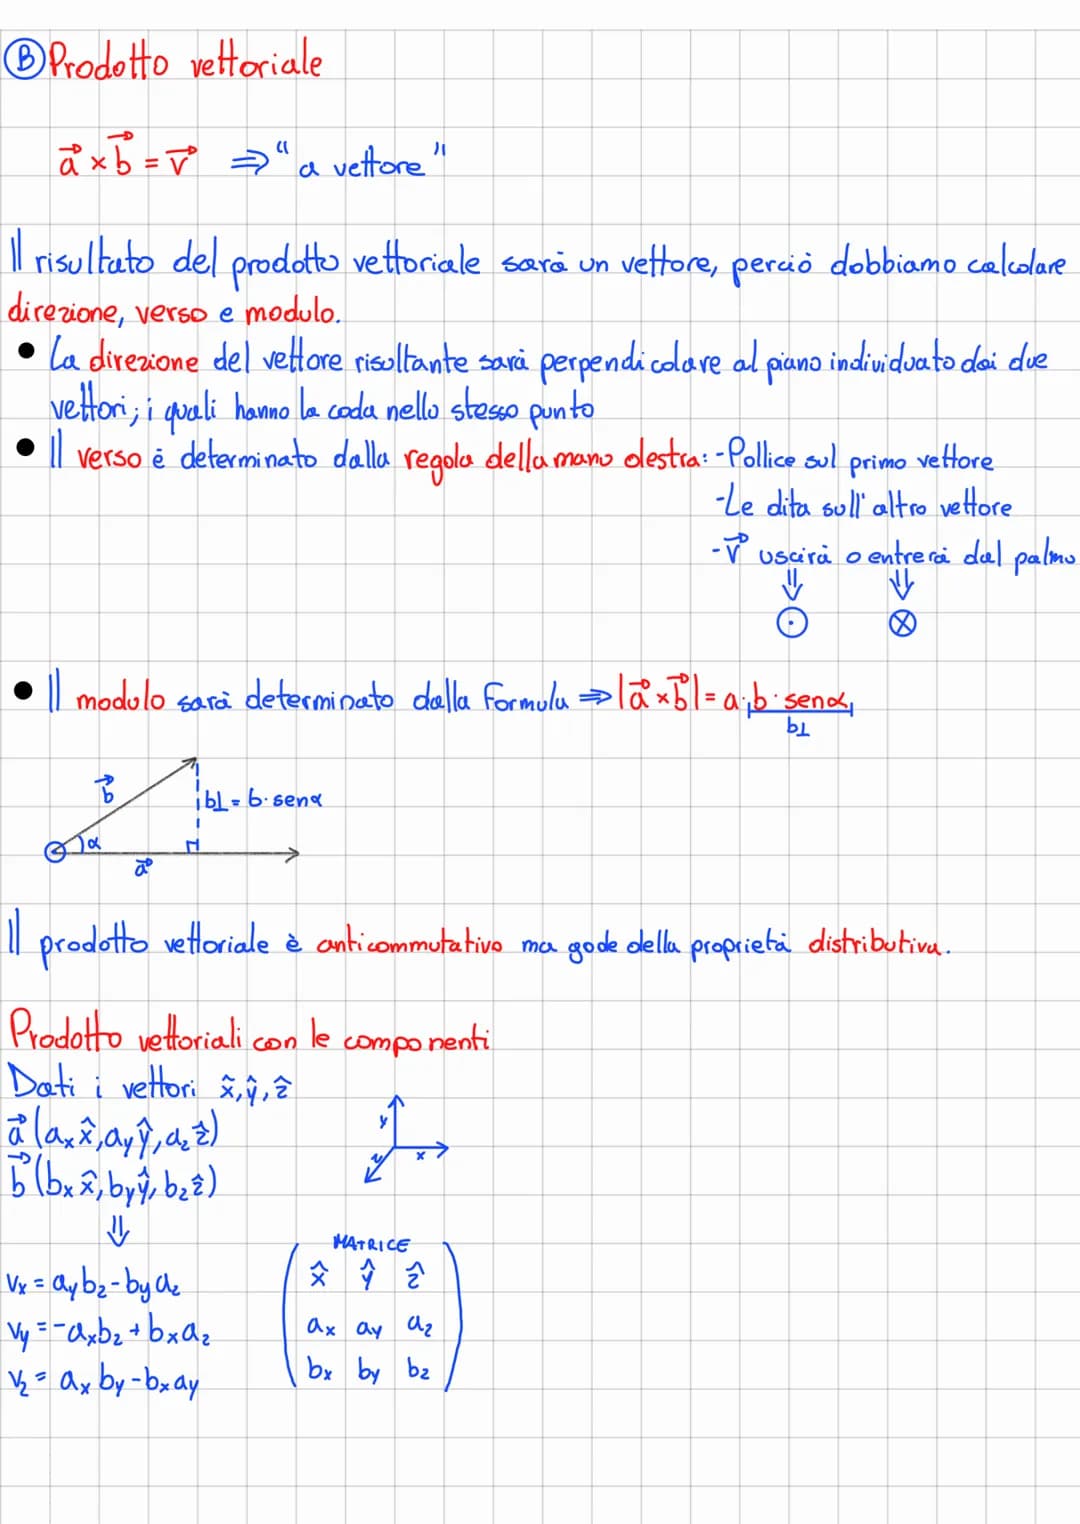 Ⓑ Prodotto vettoriale
a⃗ × b⃗ = v⃗ ⇒ "a vettore"
Il risultato del prodotto vettoriale sarà un vettore, perciò dobbiamo calcolare
direzione, verso e modulo.
● La direzione del vettore risultante sarà perpendicolare al piano individuato dai due
vettori; i quali hanno la coda nello stesso punto
● Il verso è determinato dalla regola della mano destra: -Pollice sul primo vettore
-Le dita sull'altro vettore
-v⃗ uscirà o entrerà dal palmo
⇓ ⇓
⊙ ⊗
● Il modulo sarà determinato dalla formula ⇒ |a⃗ × b⃗| = a · b · senα
b⊥
b⃗
b⊥ = b · senα
α
a⃗
Il prodotto vettoriale è anticommutativo ma gode della proprietà distributiva.
Prodotto vettoriali con le componenti
Dati i vettori x̂, ŷ, ẑ
a⃗ (aₓx̂, a_yŷ, a_zẑ)
b⃗ (bₓx̂, b_yŷ, b_zẑ)
y
x
z
⇓
MATRICE
x̂ ŷ ẑ
aₓ a_y a_z
bₓ b_y b_z
vₓ = a_y b_z - b_y a_z
v_y = -aₓ b_z + bₓ a_z
v_z = aₓ b_y - bₓ a_y